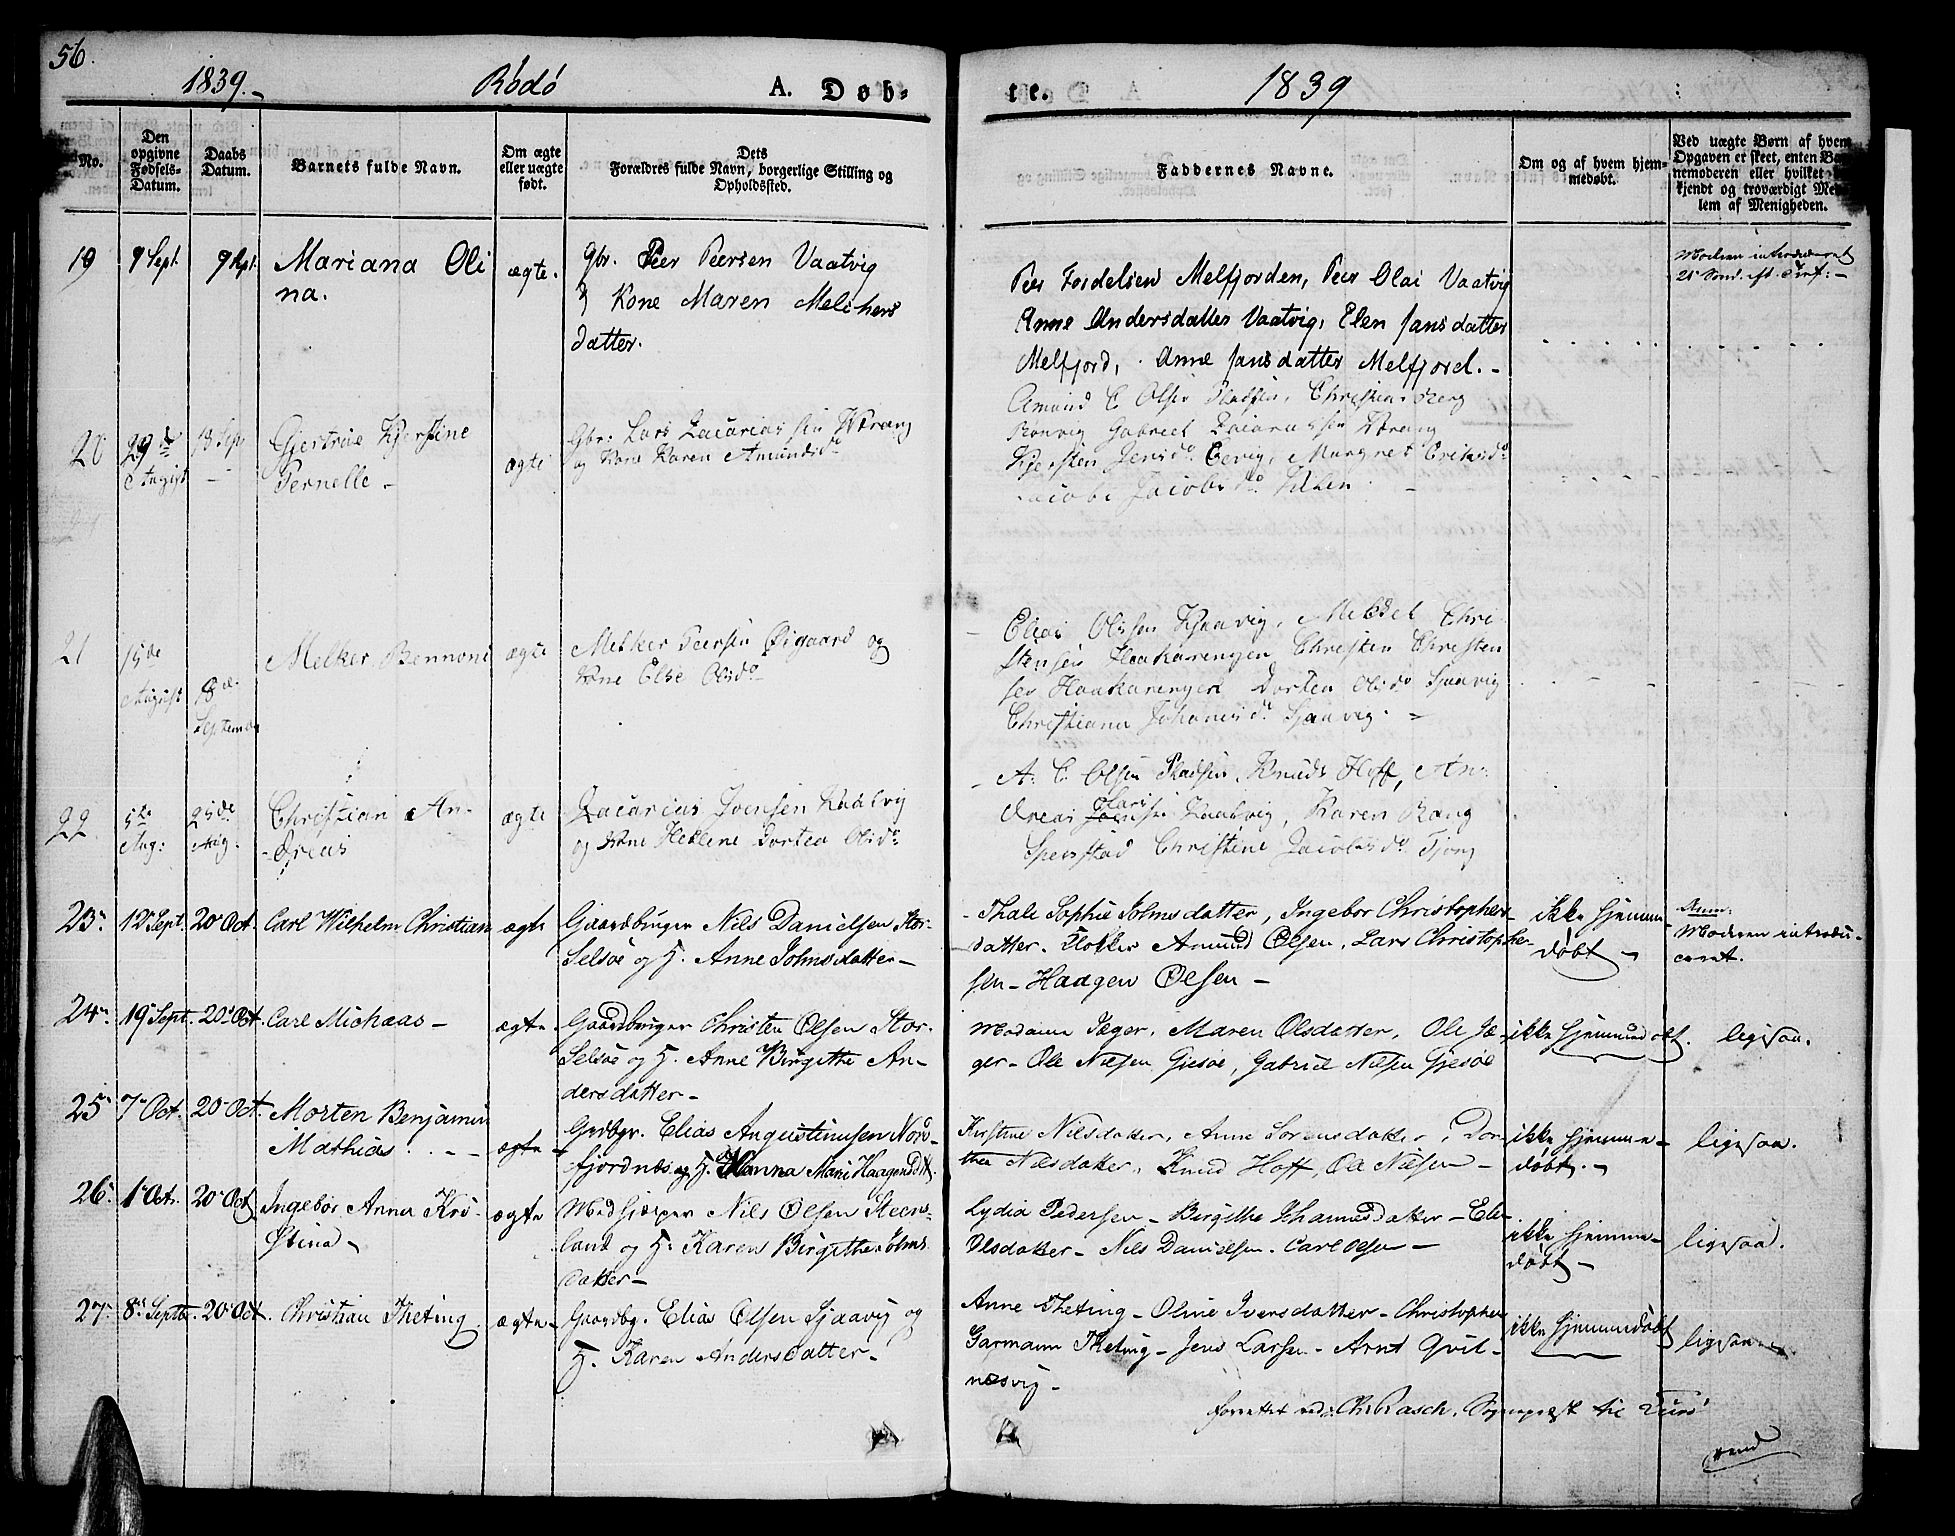 56.
1839.
Rödö
A. Döb-
te.
1839
No.
Den opgivne Fødsels-Datum.
Daabs Datum.
Barnets fulde Navn.
Om ægte eller uægte født.
Dets Forældres fulde Navn, borgerlige Stilling og Opholdssted.
Faddernes Navne.
Om og af hvem hjem-medøbt.
Ved uægte Børn af hvem
Opgaven er skeet, enten Bar
nemoderen eller hvilket
kjendt og troværdigt Med
lem af Menigheden.
19 9 Sept. 9 Sept. Mariana Oli ægte. Gbr. Peer Peersen Vaatvig
na. Kone Maren Melchers
datter.
Melfjorden, Peer Olai Vaatvig
Anne Andersdatter Vaatvig, Elen Jansdatter
Melfjord, Anne Jansdatter Melfjord.
Moderen introduceret
20 29de August 18 Sep Gjertrue Kjerstine ægte Gbr: Lars Zacariassen Værang
Pernelle og Kone Karen Amundsdr
Amund C Olsen Pladsen, Christian Berg
Ronvig Gabriel Zacariassen Værang
Kjersten Jensdr Margret Eriksdr
Jacobsdr
21 15de August 18de September Melker Bennoni ægte Melker Peersen Öigaard og
Kone Else Olsdr
Elias Olssen Sjaavig, Mekkel Chri
stensen Haakarengen Christen Christen
sen Haakarengen Dortea Olsdr Sjaavig
Christiana Johanesdr Sjaavig.
22 5te Aug: 25de Aug. Christian An- ægte Zacarias Ivensen Kaalvig
dreas og Kone Hellene Dortea Olsdr
A. C. Olsen Pladsen, Knuds Hoff, An-
dreas Kaalvig, Karen Bang
Spersstad Christine Jacobsdr Tjong
23. 12 Sept. 20 Oct. Carl Wilhelm Christian ægte Gaardbruger Nils Danielsen Stor-
Selsöe og H. Anne Johnsdatter
Thale Sophie Johnsdatter, Ingebor Christophers-
datter. Klokker Amund Olsen, Lars Christophe-
sen - Haagen Olsen
ikke hjemme
döbt
Anm:
Moderen introdu-
ceret.
24. 19 Sept. 20 Oct. Carl Michaas ægte Gaardbruger Christen Olsen Stor-
Selsöe og H. Anne Birgithe An-
dersdatter
Madame Jæger, Maren Olsdatter, Ole Jæ-
ger - Ole Nilsen Giesöe, Gabriel Nilsen Gjesöe
ikke hjemmedöbt.
ligesaa.
25 7 Oct. 20 Oct. Morten Benjamin
Mathias ægte Grdbgr. Elias Augustinusen Nord-
fjordnæs og H. Hanna Marie Haagensdt.
Kirstine Nilsdatter, Anne Sorensdatter, Dor-
thea Nilsdatter, Knud Hoff, Ole Nilsen
ikke hjemme-
döbt.
ligesaa.
26. 1 Oct. 20 Oct Ingebor Anna Kri-
stina ægte Nils Olsen Steens-
land og H. Karen Birgithe Johns
datter
Lydia Pedersen - Birgithe Johannesdatter - Elen
Olsdatter - Nils Danielsen. Carl Olsen
ikke hjemme-
döbt
ligesaa.
27. 8 Septbr. 20 Oct. Christian Theting ægte Gaardbg. Elias Olsen Sjaavig og
H. Karen Andersdatter
Anne Theting - Oline Iversdatter - Christopher
Garmann Theting - Jens Larsen - Arnt Qvit-
næsvig
ikke hjemmedöbt
ligesaa
forrettet ved Ch. Rasch, Sognepræst til
vend